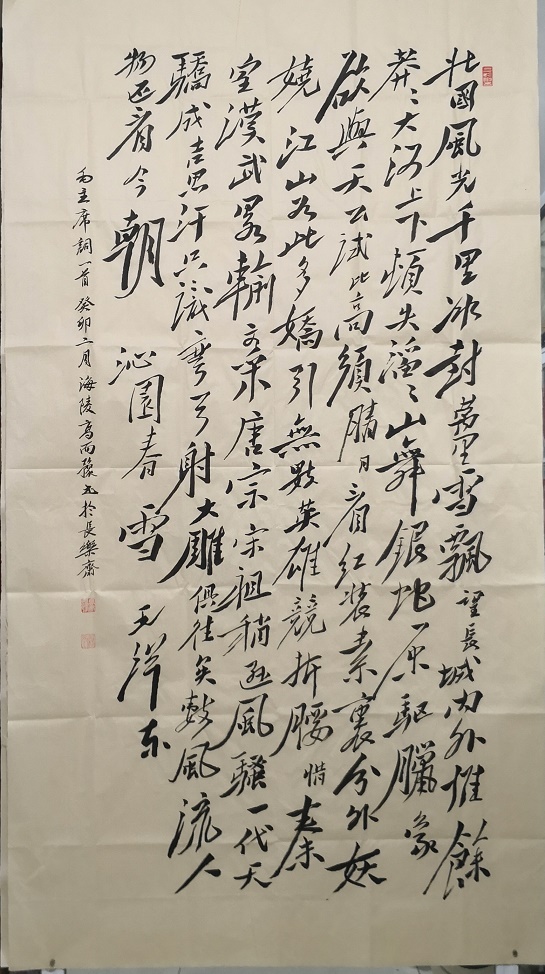 北國風光千里冰封萬里雪飄望長城内外惟餘
莽々大河上下頓失滔々山舞銀蛇原驅臘象
欲與天公試比高須晴日看紅裝素裹分外妖
嬈江山如此多嬌引無數英雄競折腰惜秦
皇漢武略輸文采唐宗宋祖稍遜風騷一代天
驕成吉思汗只識彎弓射大雕俱往矣數風流人
物還看今朝 沁園春雪 毛澤東
毛主席詞一首癸卯二月海陵高而書於長樂齋